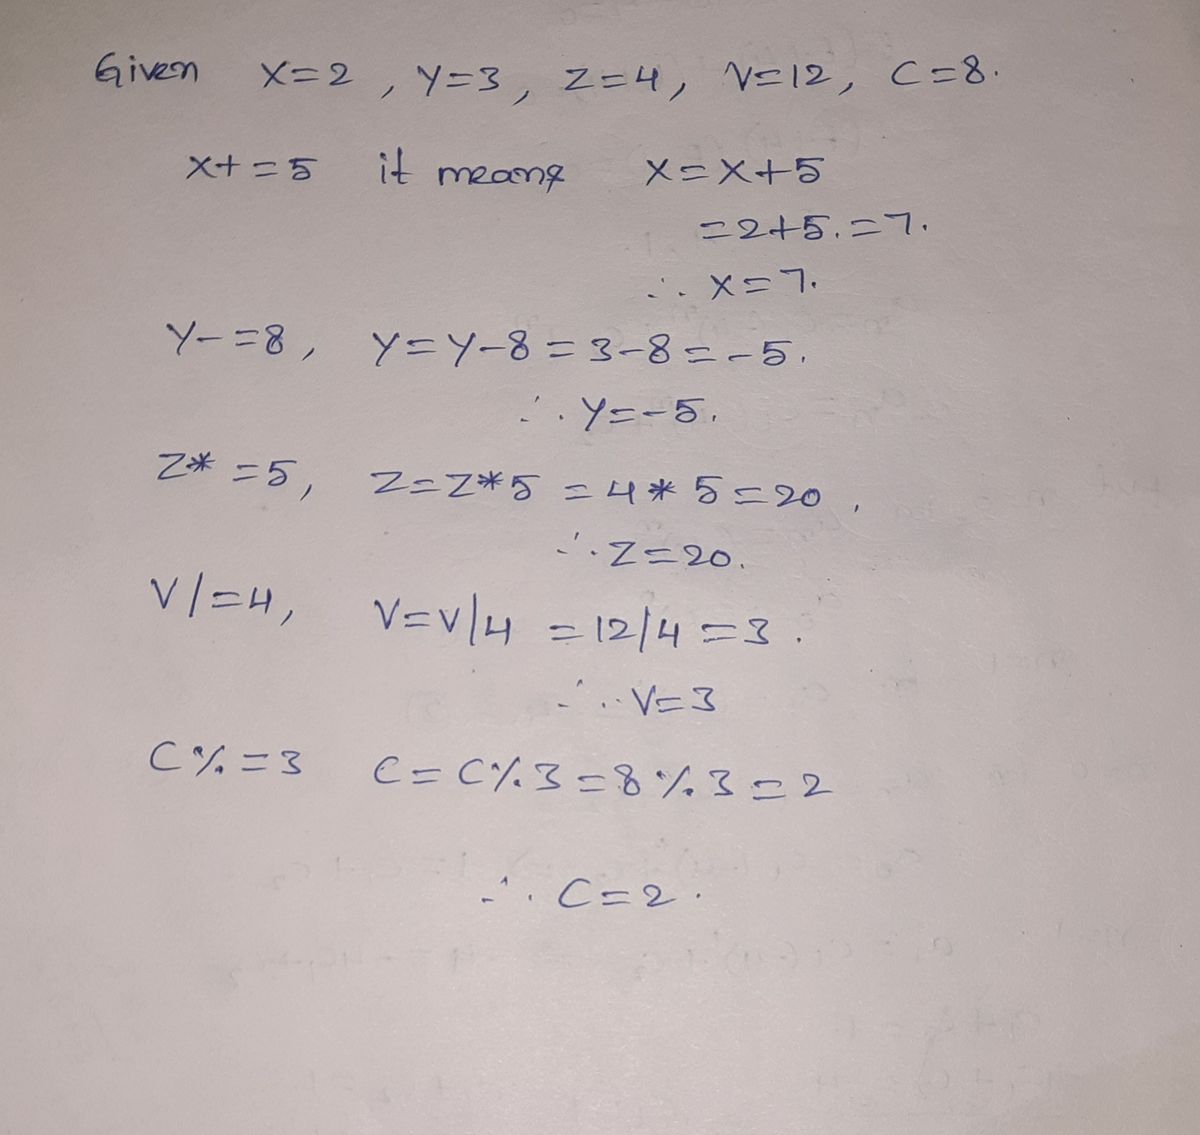 Given X=2, Y=3, Z=4, V=12, C=8.
X+=5 it means X=X+5
=2+5.=7.
∴ X=7.
Y-=8, Y=Y-8=3-8=-5.
∴ Y=-5.
Z*=5, Z=Z*5=4*5=20,
∴ Z=20.
V/=4, V=V/4=12/4=3.
∴ V=3
C%=3 C=C%3=8%3=2
∴ C=2.